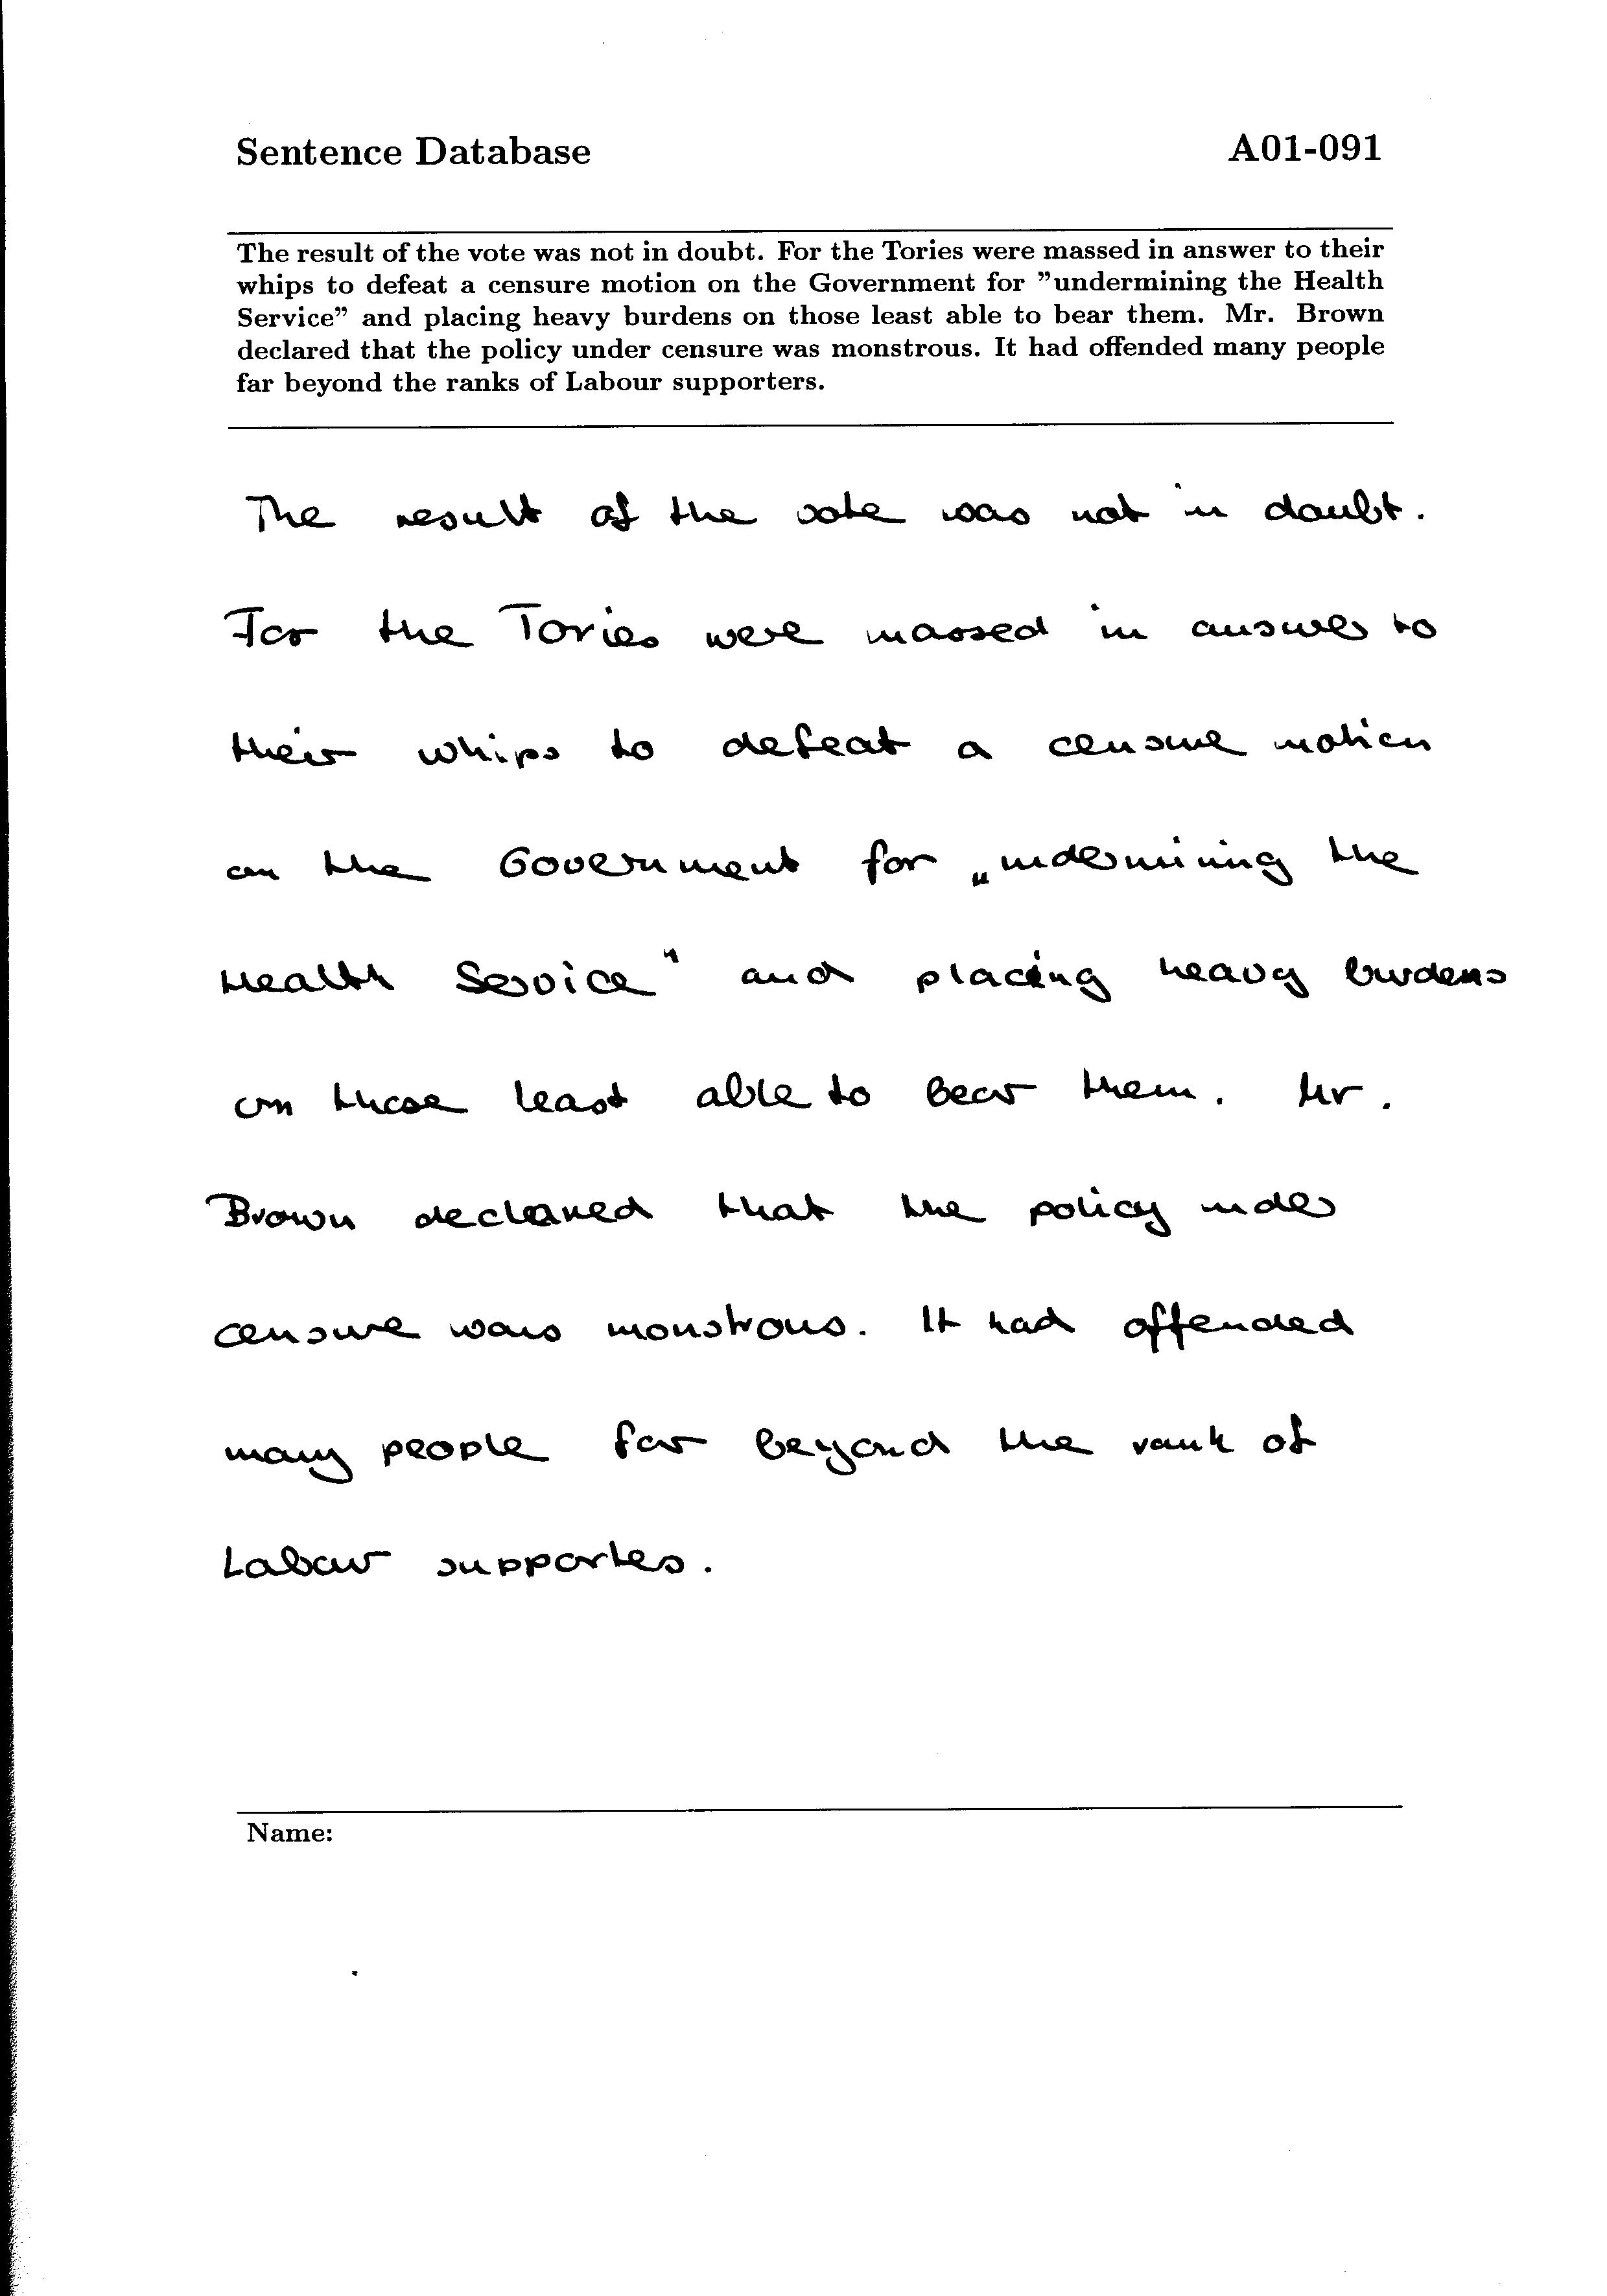 Sentence Database A01-091
The result of the vote was not in doubt. For the Tories were massed in answer to their
whips to defeat a censure motion on the Government for ”undermining the Health
Service” and placing heavy burdens on those least able to bear them. Mr. Brown
declared that the policy under censure was monstrous. It had offended many people
far beyond the ranks of Labour supporters.
The result of the vote was not in doubt.
For the Tories were massed in answer to
their whips to defeat a censure motion
on the Government for „undermining the
Health Service“ and placing heavy burdens
on those least able to bear them. Mr.
Brown declared that the policy under
censure was monstrous. It had offended
many people far beyond the rank of
Labour supporters.
Name: